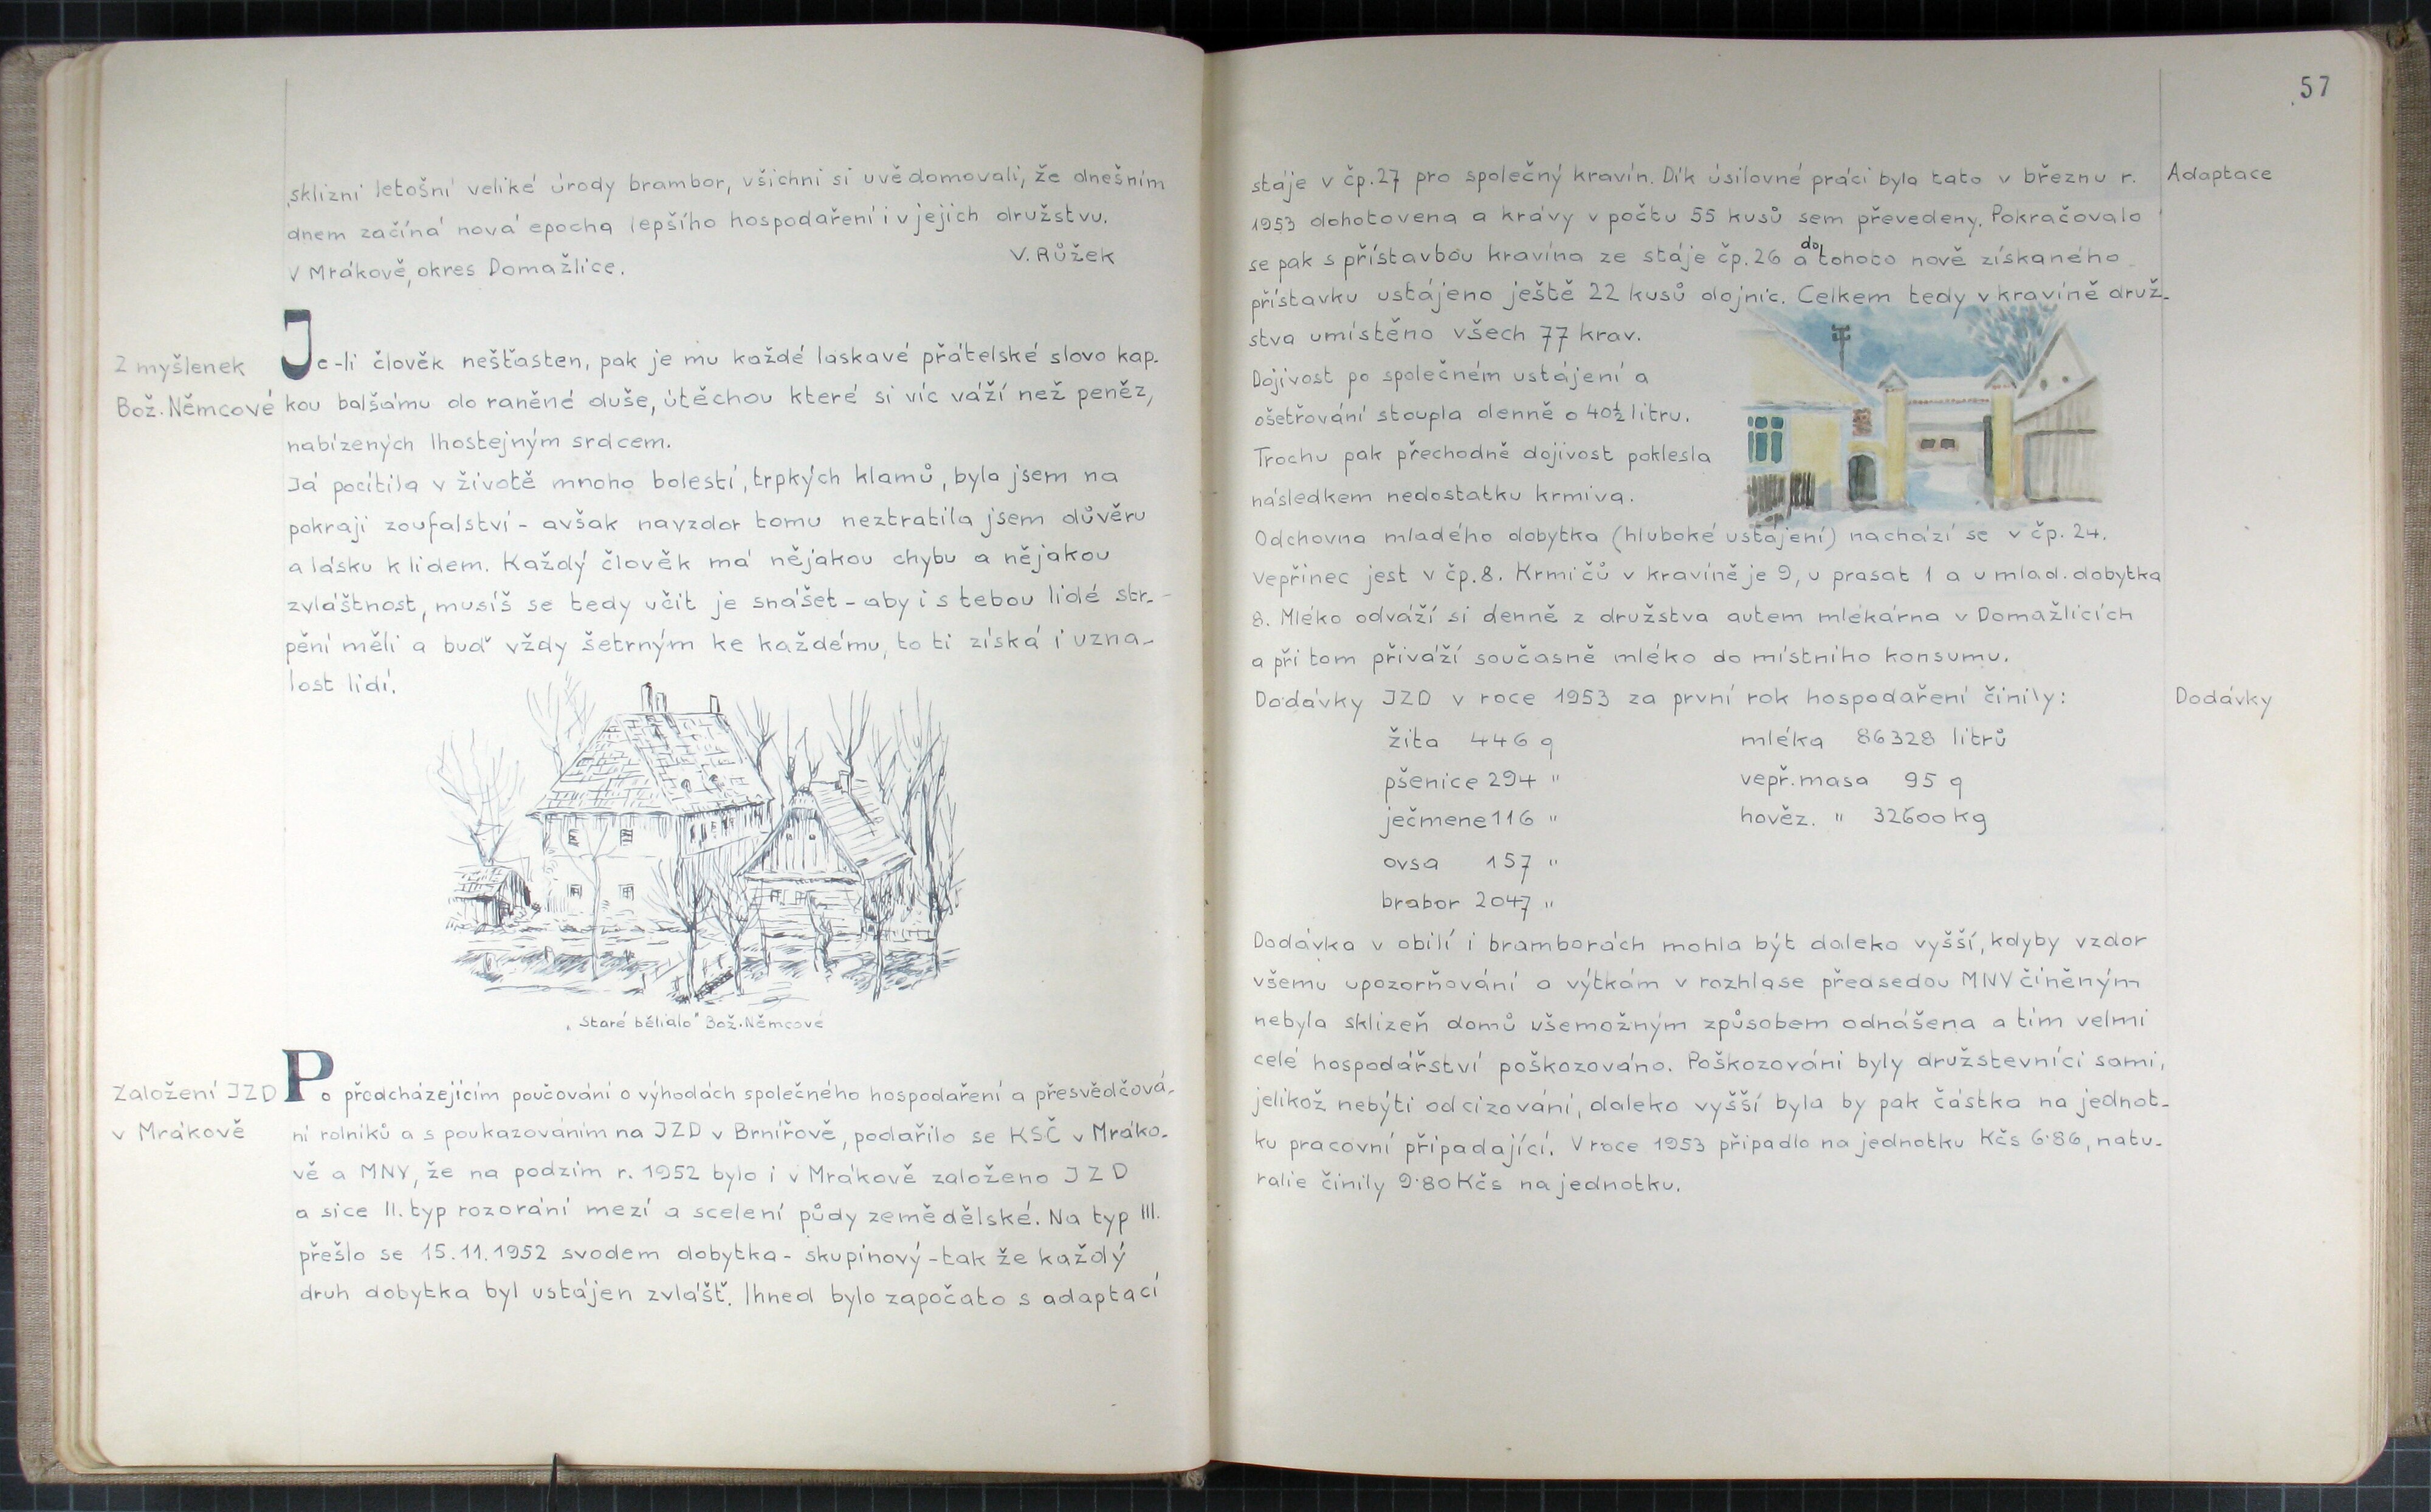 sklizni letošní veliké úrody brambor, všichni si uvědomovali, že dnešním
dnem začíná nová epocha lepšího hospodaření i v jejich družstvu.
V. RŮŽEK
V Mrákově, okres Domažlice.
Z myšlenek
Bož. Němcové
Je-li člověk nešťasten, pak je mu každé laskavé přátelské slovo kap-
kou balšámu do raněné duše, útěchou které si víc váží než peněz,
nabízených lhostejným srdcem.
Já pocítila v životě mnoho bolestí, trpkých klamů, byla jsem na
pokraji zoufalství - avšak navzdor tomu neztratila jsem důvěru
a lásku k lidem. Každý člověk má nějakou chybu a nějakou
zvláštnost, musíš se tedy učit je snášet - aby i s tebou lidé str-
pění měli a buď vždy šetrným ke každému, to ti získá i uzna-
lost lidí.
„Staré bělidlo" Bož. Němcové
Založení JZD
v Mrákově
Po předcházejícím poučování o výhodách společného hospodaření a přesvědčová-
ní rolníků a s poukazováním na JZD v Brnířově, podařilo se KSČ v Mráko-
vě a MNV, že na podzim r. 1952 bylo i v Mrákově založeno JZD
a sice II. typ rozorání mezí a scelení půdy zemědělské. Na typ III.
přešlo se 15.11.1952 svodem dobytka - skupinový - tak že každý
druh dobytka byl ustájen zvlášť. Ihned bylo započato s adaptací
57
Adaptace
stáje v čp. 27 pro společný kravín. Dík úsilovné práci byla tato v březnu r.
1953 dohotovena a krávy v počtu 55 kusů sem převedeny. Pokračovalo
se pak s přístavbou kravína ze stáje čp. 26 a do tohoto nově získaného
přístavku ustájeno ještě 22 kusů dojnic. Celkem tedy v kravíně druž-
stva umístěno všech 77 krav.
Dojivost po společném ustájení a
ošetřování stoupla denně o 40½ litru.
Trochu pak přechodně dojivost poklesla
následkem nedostatku krmiva.
Odchovna mladého dobytka (hluboké ustájení) nachází se v čp. 24.
Vepřinec jest v čp. 8. Krmičů v kravíně je 9, u prasat 1 a u mlad. dobytka
8. Mléko odváží si denně z družstva autem mlékárna v Domažlicích
a při tom přiváží současně mléko do místního konsumu.
Dodávky
Dodávky JZD v roce 1953 za první rok hospodaření činily:
žita 446 q mléka 86328 litrů
pšenice 294 " vepř. masa 95 q
ječmene 116 " hověz. " 32600 kg
ovsa 157 "
brabor 2047 "
Dodávka v obilí i bramborách mohla být daleko vyšší, kdyby vzdor
všemu upozorňování a výtkám v rozhlase předsedou MNV číněným
nebyla sklizeň domů všemožným způsobem odnášena a tím velmi
celé hospodářství poškozováno. Poškozováni byly družstevníci sami,
jelikož nebýti odcizování, daleko vyšší byla by pak částka na jednot-
ku pracovní připadající. V roce 1953 připadlo na jednotku Kčs 6·86, natu-
ralie činily 9·80 Kčs na jednotku.